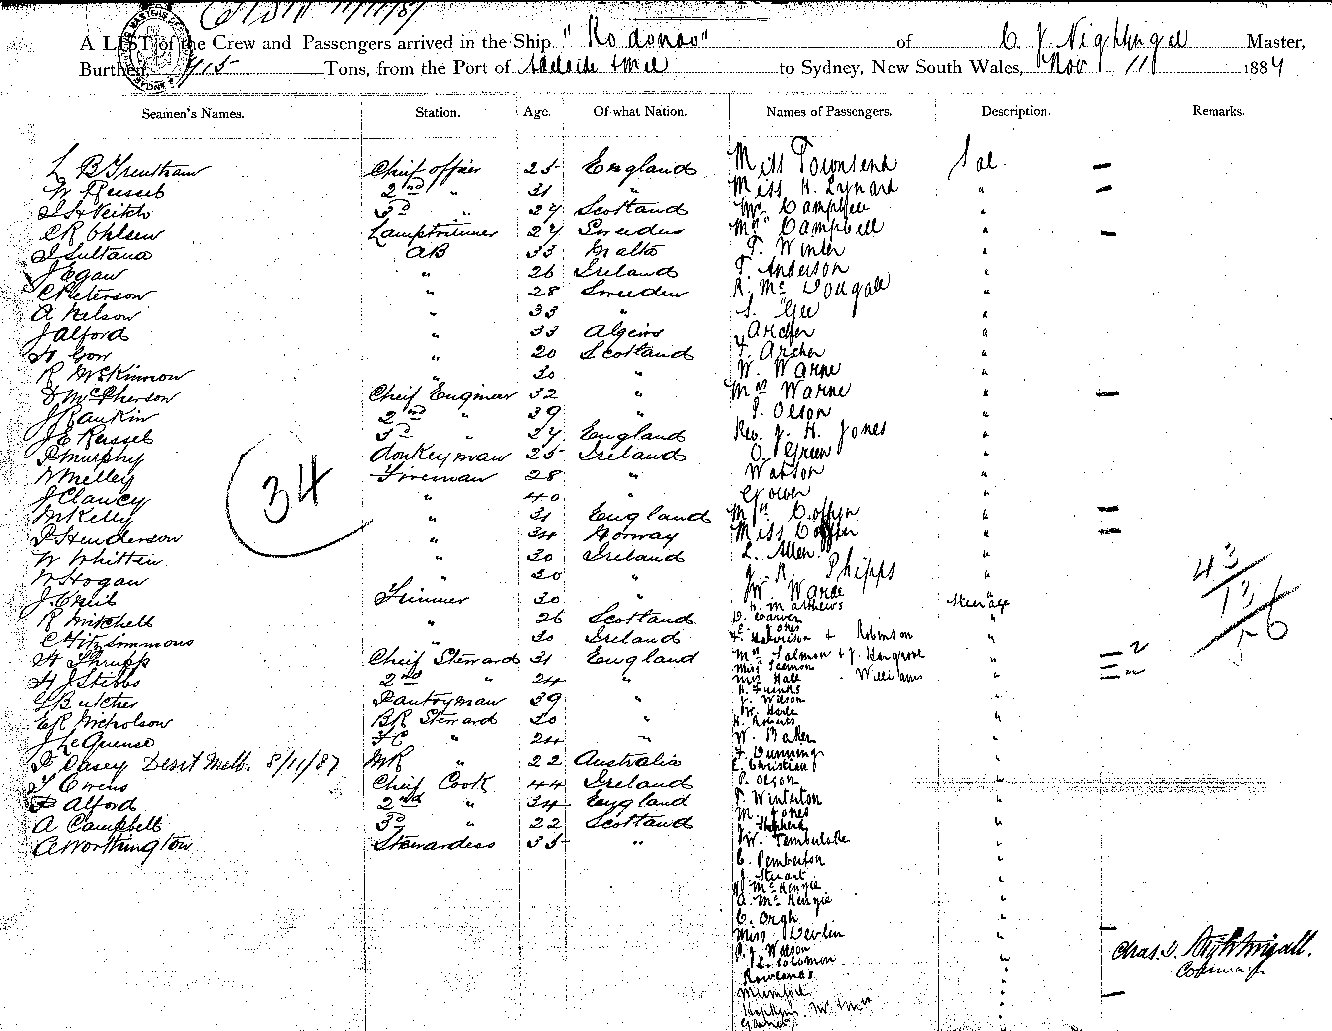 A LIST of the Crew and Passengers arrived in the Ship "Rodondo" of C J Nightingel Master,
Burthen, 715 Tons, from the Port of Adelaide & Mel to Sydney, New South Wales, Nov 11 1887
Seamen's Names. Station. Age. Of what Nation. Names of Passengers. Description. Remarks.
L B Trentham Chief officer 25 England Miss Townsend Sal.
W Russel 2nd " 31 " Miss H. Lynard "
J S Veitch 3d " 27 Scotland Mr Campbell "
C R Ohlsen Lamptrimmer 27 Sweden Mrs Campbell "
J Sultana AB 33 Malta T. Winter "
J Egan " 26 Ireland T. Anderson "
C Peterson " 28 Sweden R. Mc Dougall "
A Nelson " 33 " S. Gee "
J Alford " 33 Algeirs Archer "
H Gow " 20 Scotland F. Archer "
R McKinnon " 30 " W. Warne "
D McPherson Cheif Enginear 32 " Mrs Warne "
J Rankin 2nd " 39 " P. Olson "
J E Russel 3d " 27 England Rev. J. H. Jones "
P Murphy donkeyman 25 Ireland O. Green "
W Melley Fireman 28 " Watson "
J Clancy " 40 " Gower "
M Kelly " 31 England Mrs Coffin "
P Henderson " 34 Norway Miss Coffin "
W Whitten " 30 Ireland L. Allen "
W Hogan " 20 " J. R. Phipps "
J Smit Trimmer 30 " W. Warde "
H. Mathews Steerage
R Mitchell " 26 Scotland
C Fitzsimmons " 30 Ireland & Robinson
H Thrupp Cheif Steward 31 England Mrs Salmon & J. Hargrove 2
H J Stibbs 2nd " 24 " Miss Hall Williams
J Butcher Pantryman 39 " J. Wilson
E R Nicholson BR Steward 30 " H. Roberts
J Le Quense FC " 24 " W. Baker
P Casey Desrt Melb. 8/11/87 MR " 22 Australia E. Christian
T Owens Chief Cook 44 Ireland P. Olson
F Alford 2nd " 34 England T. Winterton
A Campbell 3d " 22 Scotland M. Jones
A Worthington Stewardess 35 " J. Shepherd
34
43
13
56
C. Pemberton
J. Stewart
W. Mc Kenzie
A. Mc Kenzie
C. Orgh
Miss Devlin
P. J. Watson
L. Solomon
Rowlands
Chas. J. Nightingall.